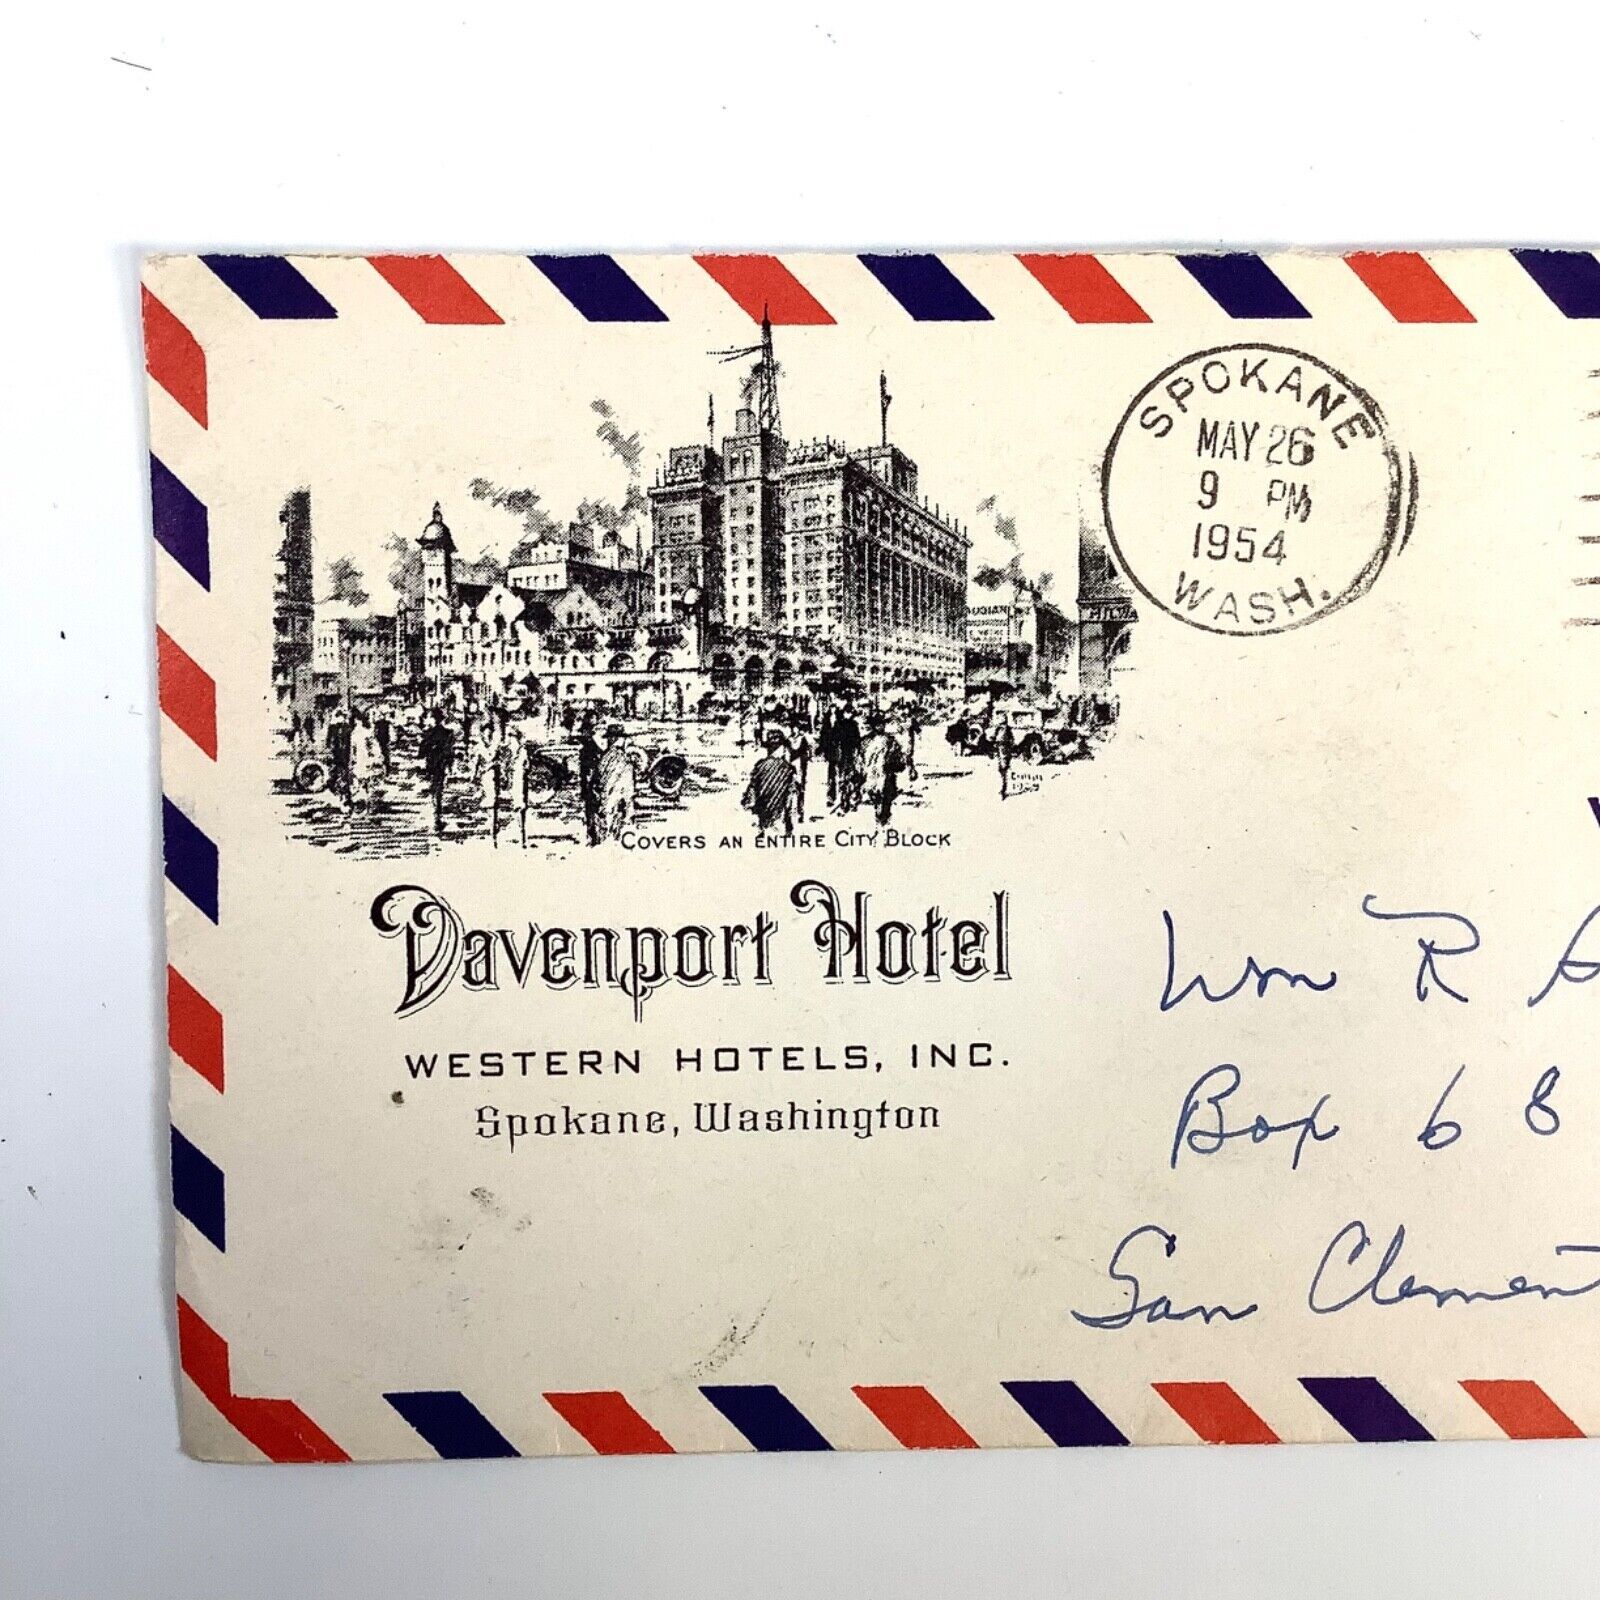 SPOKANE
MAY 26
9 PM
1954
WASH.
COVERS AN ENTIRE CITY BLOCK
Davenport Hotel
WESTERN HOTELS, INC.
Spokane, Washington
Wm R
Box 68
San Clement